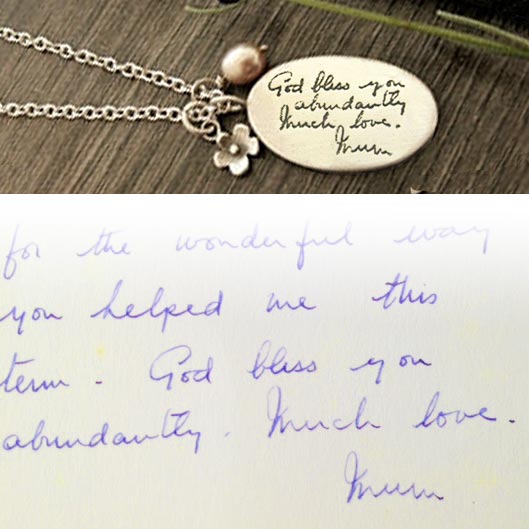 God bless you
abundantly
Much love.
Mum
for the wonderful way
you helped me this
term. God bless you
abundantly. Much love.
Mum